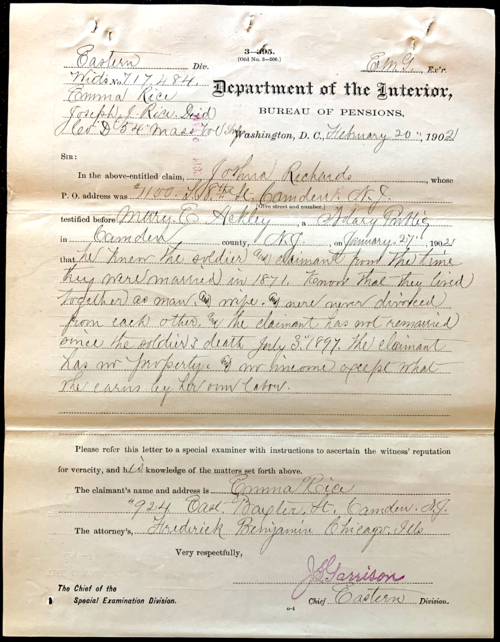 Eastern Div.
3—395.
(Old No. 3—506.)
E.M.G. Ex'r.
Wid's No. 717484.
Emma Rice
Joseph J. Rice Dec'd
Co. D 54 Mass Vol Inf
Department of the Interior,
BUREAU OF PENSIONS,
Washington, D. C., February 20", 1902
SIR:
In the above-entitled claim, Joshua Richards, whose
P. O. address was #1100 S. 8th St. Camden, N.J.
(Give street and number.)
testified before Mary E Ackley, a Notary Public
in Camden county, N.J., on January 27", 1902
that he knew the soldier & claimant from the time
they were married in 1871. Know that they lived
together as man & wife. & were never divorced
from each other. & the claimant has not remarried
since the soldier's death July 3" 1897. The claimant
has no property. & no income except what
she earns by her own labor.
Please refer this letter to a special examiner with instructions to ascertain the witness' reputation
for veracity, and his knowledge of the matters set forth above.
The claimant's name and address is Emma Rice
#924 East St. Camden. N.J.
The attorney's, Frederick Benjamin Chicago. Ills
Very respectfully,
J.S. Garrison
The Chief of the
Special Examination Division.
Chief Eastern Division.
6-4